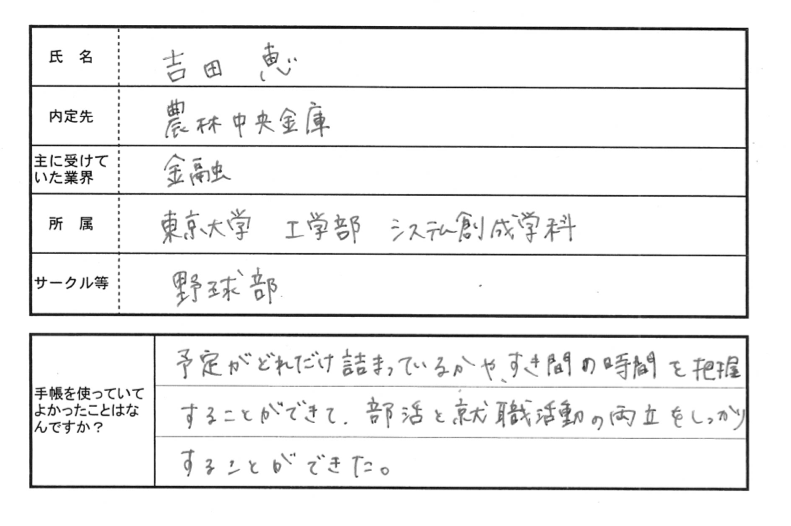 氏 名
吉田 恵
内定先
農林中央金庫
主に受けて
いた業界
金融
所 属
東京大学 工学部 システム創成学科
サークル等
野球部
手帳を使っていて
よかったことはな
んですか？
予定がどれだけ詰まっているかや、すき間の時間を把握
することができて、部活と就職活動の両立をしっかり
することができた。